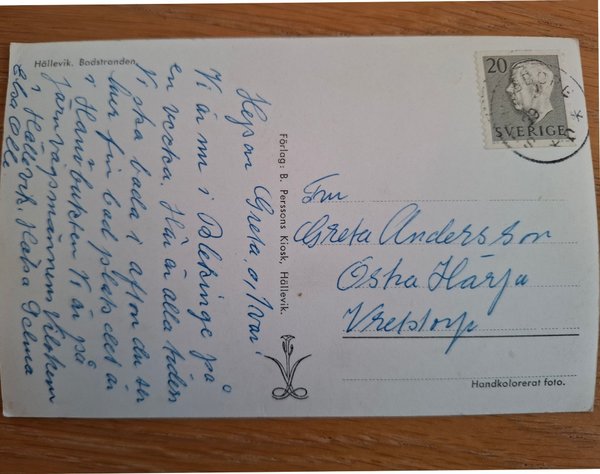 Hällevik. Badstranden.
Hejsan Greta, o, Ivar!
Vi är nu i Blekinge på
en vecka. Här är alla tiders
Vi ska bada i afton du ser
hur fin badplats det är
i Hanöbukten Vi är på
Järnvägsmännens vilohem
i Hällevik. Hälsn
Elsa Olle
Förlag: B. Perssons Kiosk, Hällevik.
20
SVERIGE
Fru
Greta Andersson
Östra Härja
Vretstorp
Handkolorerat foto.